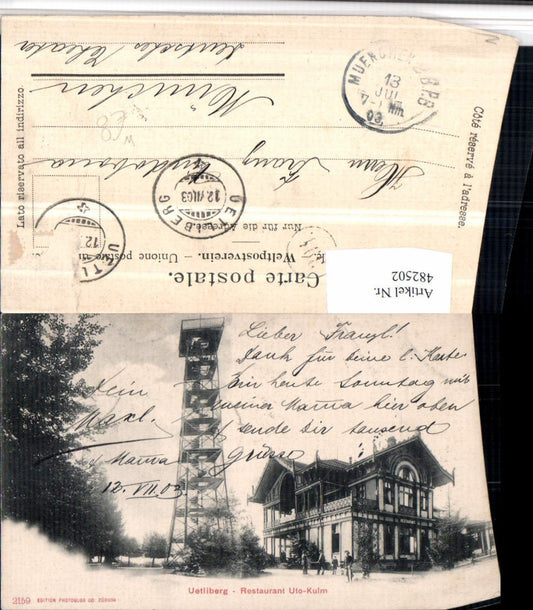 Carte postale.
Weltpostverein. — Unione postale
Nur für die Adresse.
Côté réservé à l'adresse.
Lato riservato all indirizzo.
Herrn Franz
München
deutsches Theater
MUENCHEN
13
JUL
03
UETLIBERG
12.VII.03
UETLI
12.
Artikel Nr.
482502
Lieber Franzl!
Dank für deine l. Karte
Bin heute Sonntag mit
meiner Mama hier oben
& sende dir tausend
Grüsse
Dein
Maxl.
& Mama
12. VII. 03.
Uetliberg - Restaurant Uto-Kulm
2159 EDITION PHOTOGLOB CO. ZÜRICH